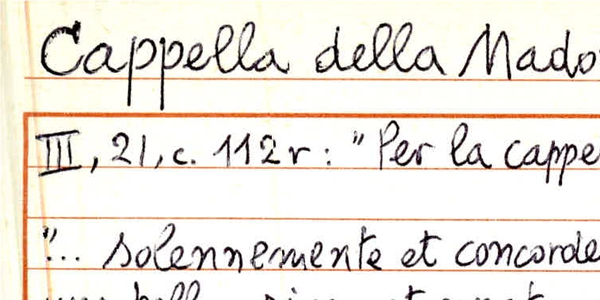 Cappella della Mado
III, 21, c. 112 r : "Per la cappe
"... solennemente et concorde
una bella